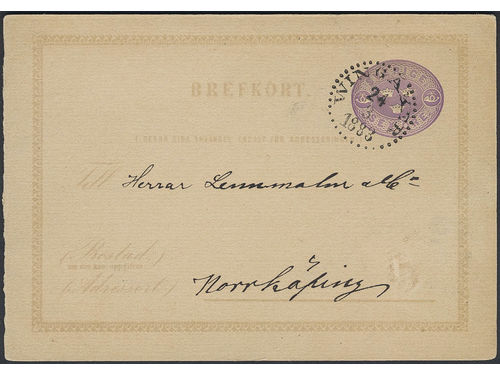 BREFKORT.
WINGÅKER
24
1883
Till Herrar Lennmalm & Co
(Bostad.)
(Adressort.)
Norrköping